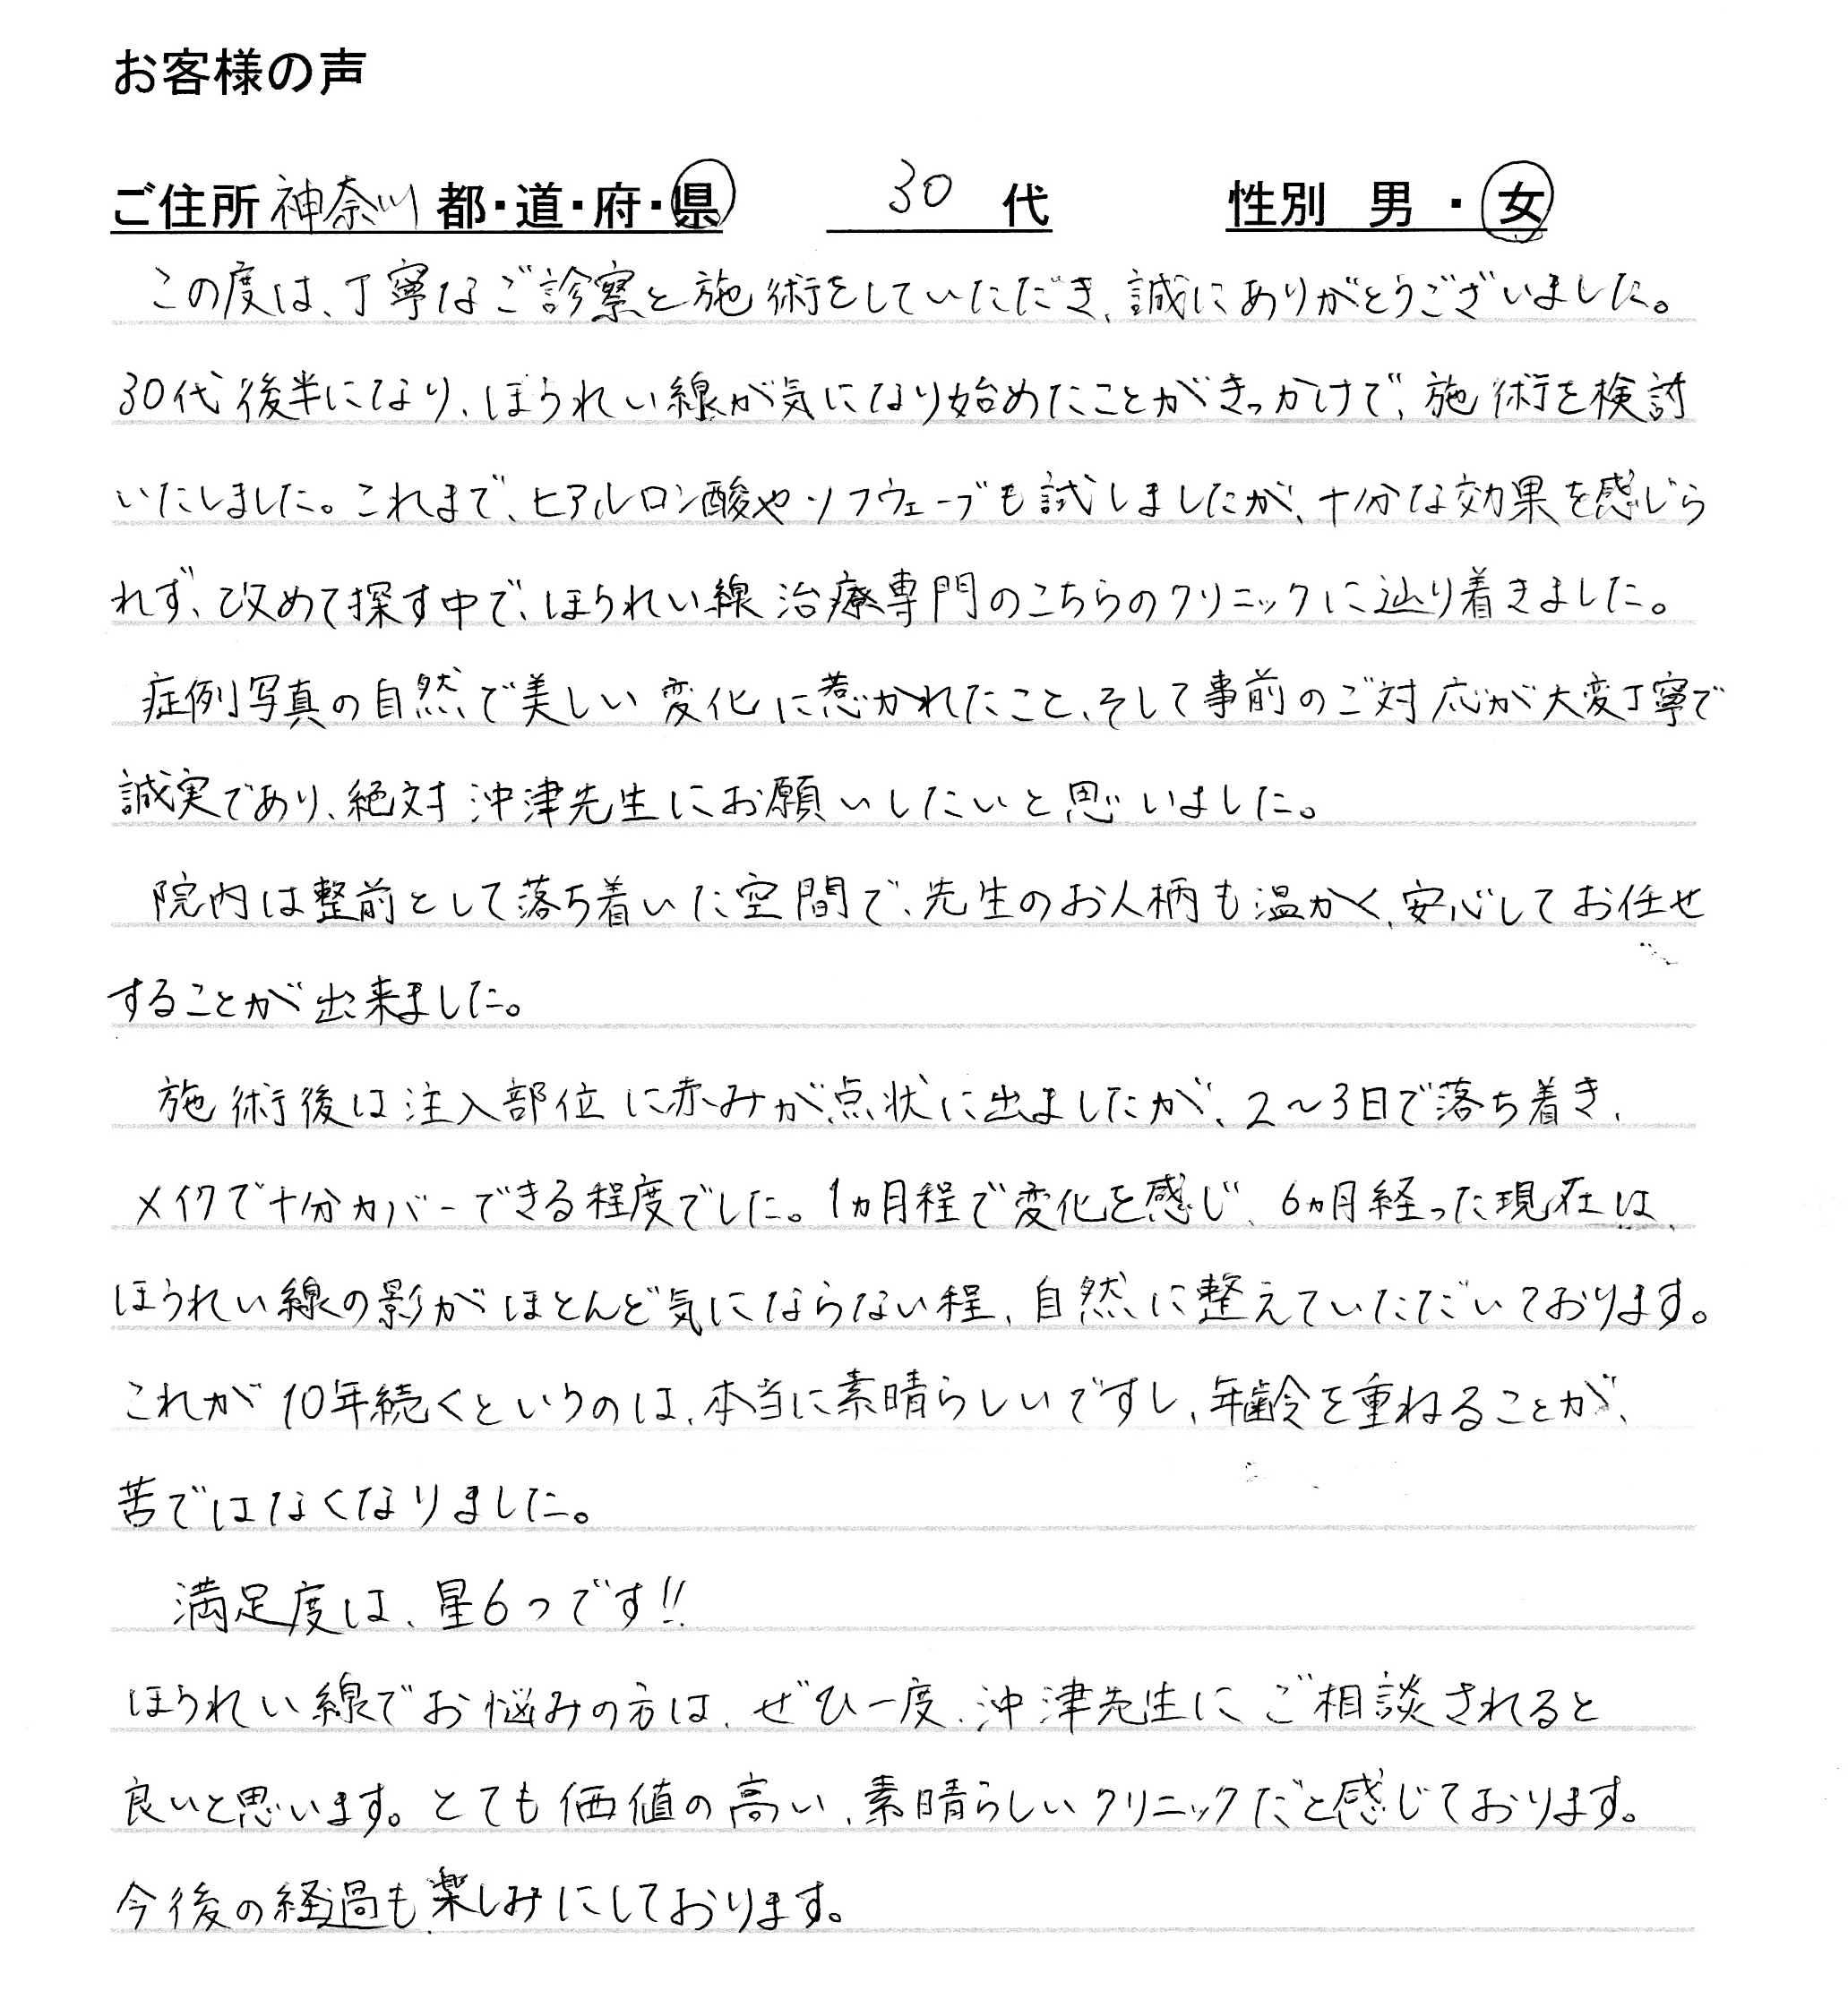 お客様の声
ご住所 神奈川 都・道・府・県 30 代 性別 男・女
この度は、丁寧なご診察と施術をしていただき、誠にありがとうございました。
30代後半になり、ほうれい線が気になり始めたことがきっかけで、施術を検討
いたしました。これまで、ヒアルロン酸やソフウェーブも試しましたが、十分な効果を感じら
れず、改めて探す中で、ほうれい線治療専門のこちらのクリニックに辿り着きました。
症例写真の自然で美しい変化に惹かれたこと、そして事前のご対応が大変丁寧で
誠実であり、絶対沖津先生にお願いしたいと思いました。
院内は整前として落ち着いた空間で、先生のお人柄も温かく、安心してお任せ
することが出来ました。
施術後は注入部位に赤みが点状に出ましたが、2〜3日で落ち着き、
メイクで十分カバーできる程度でした。1ヵ月程で変化を感じ、6ヵ月経った現在は、
ほうれい線の影がほとんど気にならない程、自然に整えていただいております。
これが10年続くというのは、本当に素晴らしいですし、年齢を重ねることが、
苦ではなくなりました。
満足度は、星6つです!!
ほうれい線でお悩みの方は、ぜひ一度、沖津先生にご相談されると
良いと思います。とても価値の高い、素晴らしいクリニックだと感じております。
今後の経過も楽しみにしております。